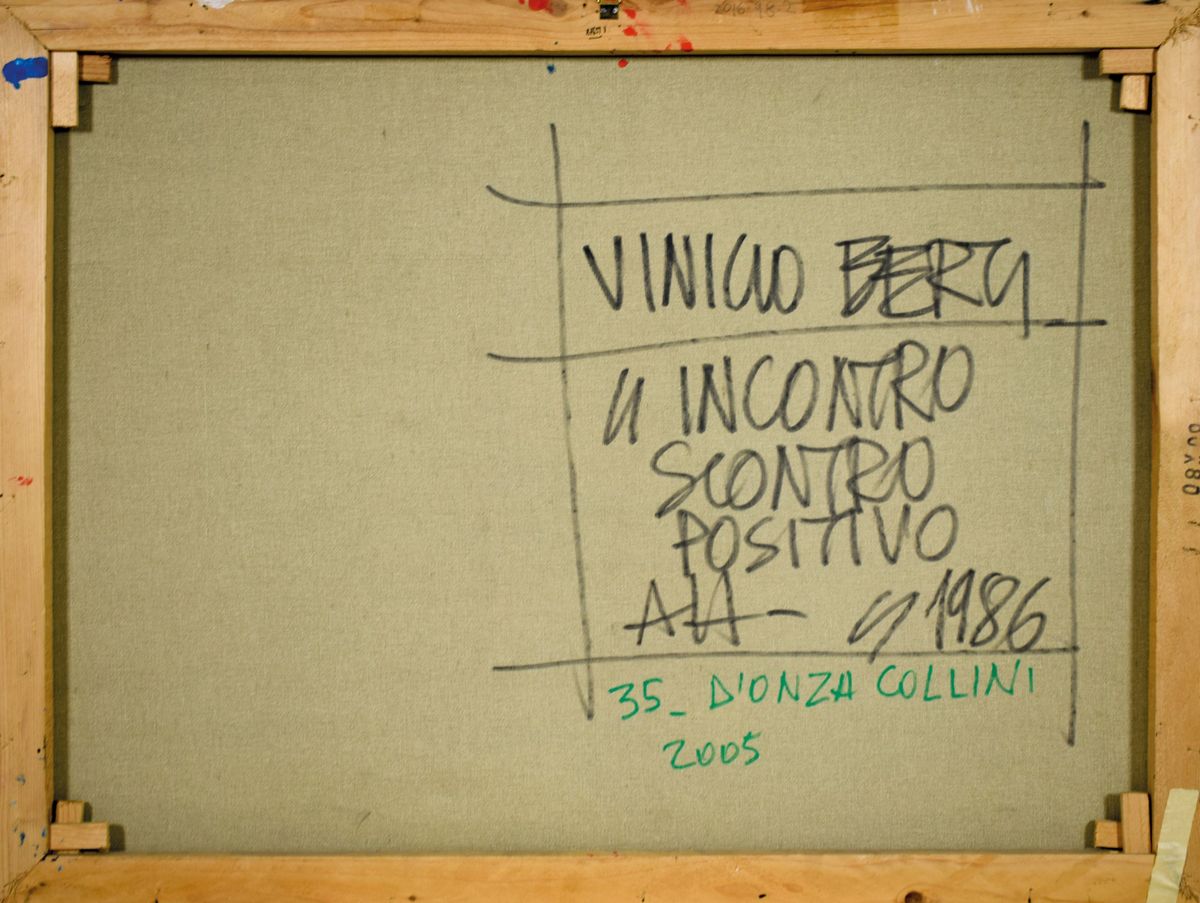 2016-98-2
VINICIO BERTI
"INCONTRO
SCONTRO
POSITIVO
" 1986
35_ D'ONZA COLLINI
2005